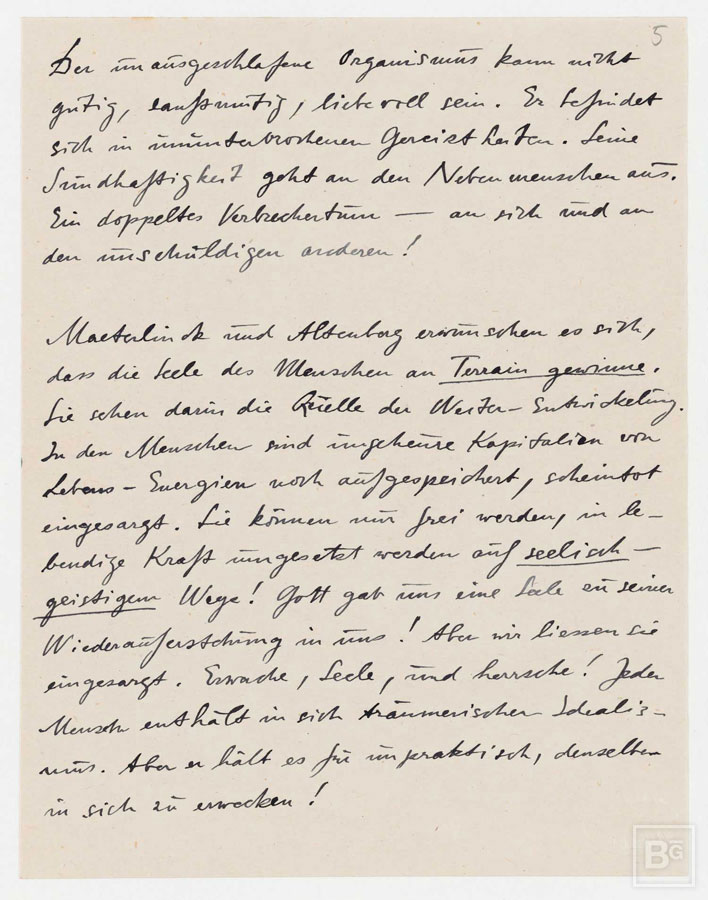 5
Der unausgeschlafene Organismus kann nicht
gütig, sanftmütig, liebevoll sein. Er befindet
sich in ununterbrochenen Gereiztheiten. Seine
Sündhaftigkeit geht an den Nebenmenschen aus.
Ein doppeltes Verbrechertum — an sich und an
den unschuldigen anderen!
Maeterlinck und Altenberg erwünschen es sich,
dass die Seele des Menschen an Terrain gewinne.
Sie sehen darin die Quelle der Weiter-Entwickelung.
In den Menschen sind ungeheure Kapitalien von
Lebens-Energien noch aufgespeichert, scheintot
eingesargt. Sie können nur frei werden, in le-
bendige Kraft umgesetzt werden auf seelisch-
geistigem Wege! Gott gab uns eine Seele zu seiner
Wiederauferstehung in uns! Aber wir liessen sie
eingesargt. Erwache, Seele, und herrsche! Jeder
Mensch enthält in sich träumerischen Idealis-
mus. Aber er hält es für unpraktisch, denselben
in sich zu erwecken!
BG